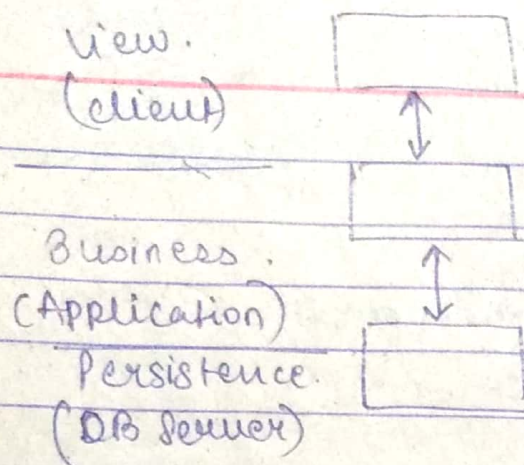 View.
(client)
Business.
(Application)
Persistence.
(DB Server)